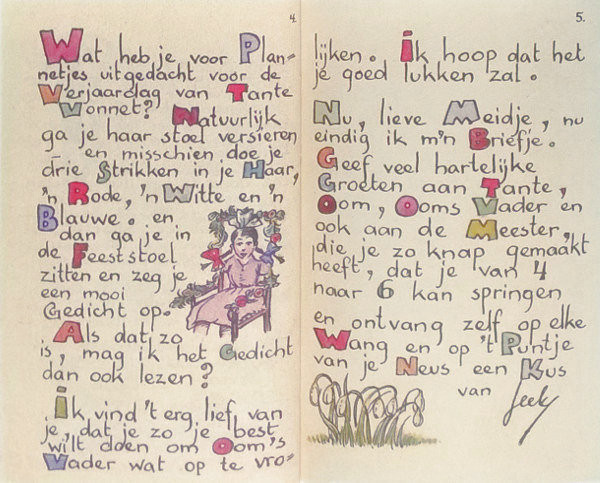 4.
Wat heb je voor Plan-
netjes uitgedacht voor de
Verjaardag van Tante
Vonnet? Natuurlijk
ga je haar stoel versieren
– en misschien doe je
drie Strikken in je Haar,
'n Rode, 'n Witte en 'n
Blauwe. en
dan ga je in
de Feeststoel
zitten en zeg je
een mooi
Gedicht op.
Als dat zo
is, mag ik het Gedicht
dan ook lezen?
Ik vind 't erg lief van
je, dat je zo je best
wilt doen om Oom's
Vader wat op te vro-
5.
lijken. Ik hoop dat het
je goed lukken zal.
Nu, lieve Meidje, nu
eindig ik m'n Briefje.
Geef veel hartelijke
Groeten aan Tante,
Oom, Ooms Vader en
ook aan de Meester,
die je zo knap gemaakt
heeft, dat je van 4
naar 6 kan springen
en ontvang zelf op elke
Wang en op 't Puntje
van je Neus een Kus
van